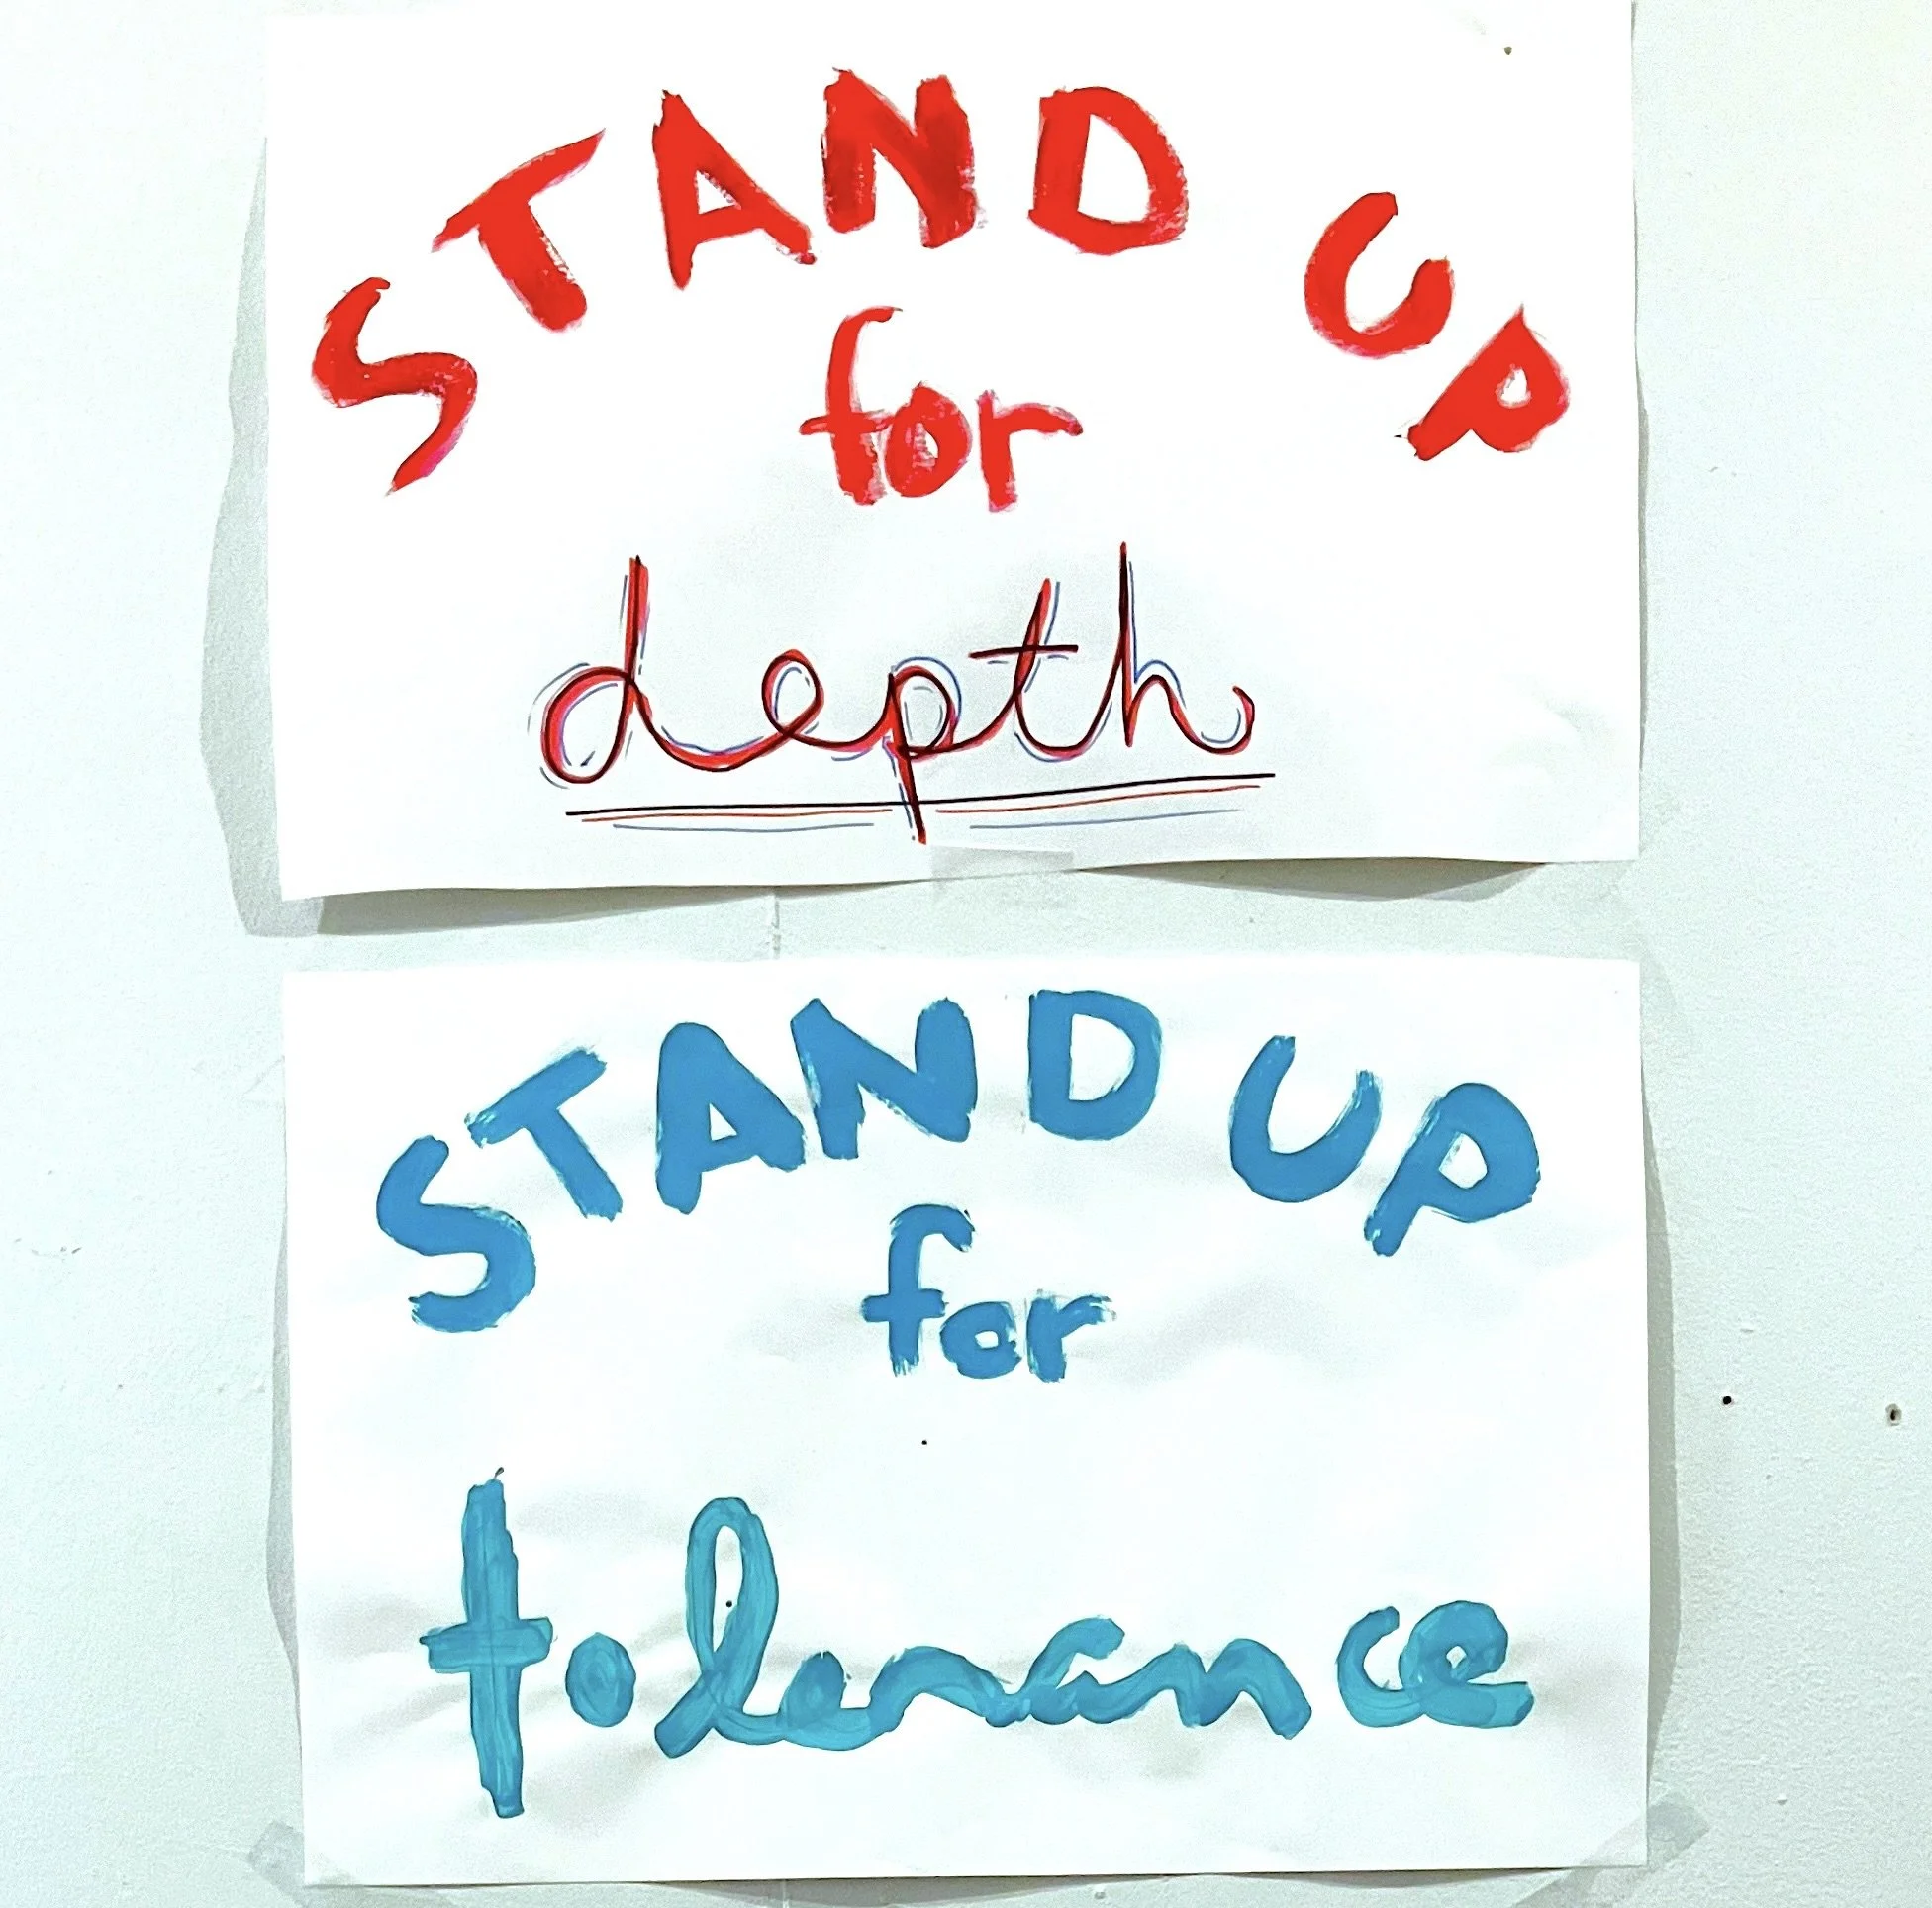 STAND UP
for
depth
STAND UP
for
tolerance